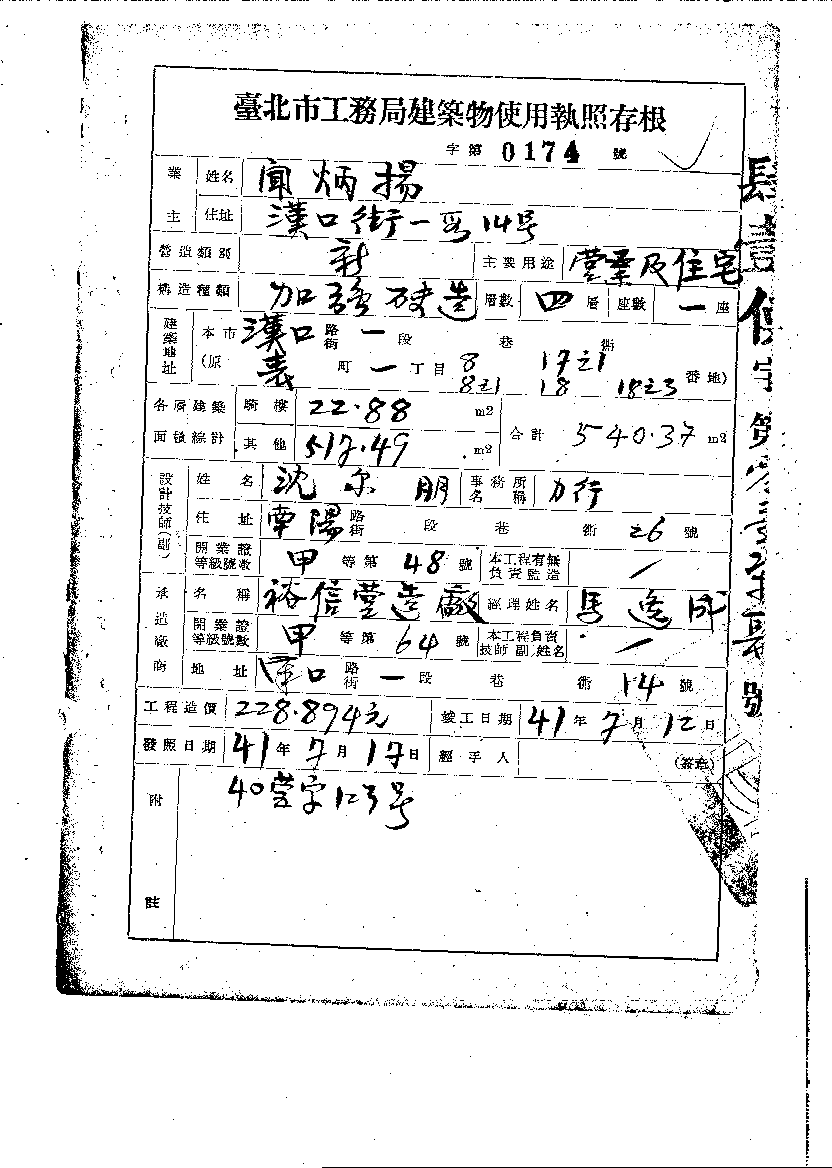 臺北市工務局建築物使用執照存根
字第 0174 號
業主 姓名 聞炳揚
住址 漢口街一段14号
營造類別 新 主要用途 營業及住宅
構造種類 加強磚造 層數 四層 座數 一座
建築地址 本市 漢口 路街 一段 巷 衖
(原 表 町 一丁目 8 17之1 番地)
8之1 18 18之3
各層建築面積總計 騎樓 22.88 m2 合計 540.37 m2
其他 517.49 m2
設計技師(副) 姓名 沈尔朋 事務所名稱 力行
住址 南陽 路街 段 巷 衖 26 號
開業證等級號數 甲 等第 48 號 本工程有無負責監造 /
承造廠商 名稱 裕信營造廠 經理姓名 馬逸成
開業證等級號數 甲 等第 64 號 本工程負責技師(副)姓名 /
地址 漢口 路街 一段 巷 衖 14 號
工程造價 228.894元 竣工日期 41年7月12日
發照日期 41年7月17日 經手人 (簽章)
附註 40營字123号
肆壹使字第
號